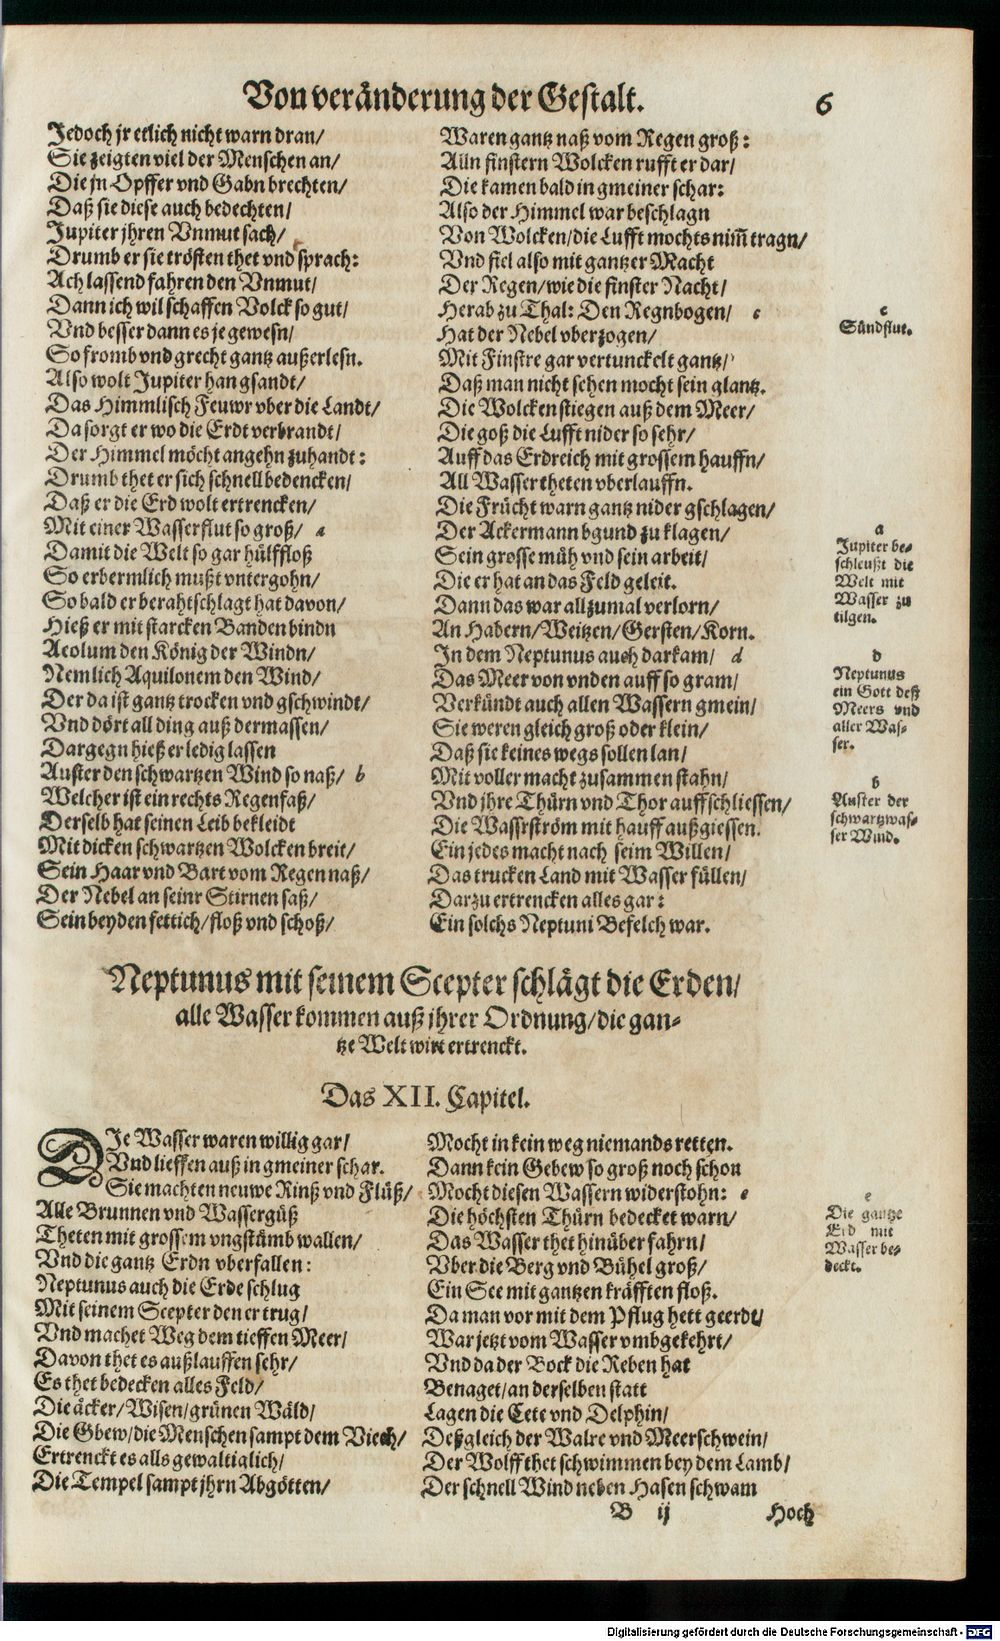 Von veränderung der Gestalt.
6
Jedoch jr etlich nicht warn dran/
Sie zeigten viel der Menschen an/
Die jn Opffer vnd Gabn brechten/
Daß sie diese auch bedechten/
Jupiter jhren Vnmut sach/
Drumb er sie trösten thet vnd sprach:
Ach lassend fahren den Vnmut/
Dann ich wil schaffen Volck so gut/
Vnd besser dann es je gewesn/
So fromb vnd grecht gantz außerlesn.
Also wolt Jupiter han gsandt/
Das Himmlisch Feuwr vber die Landt/
Da sorgt er wo die Erdt verbrandt/
Der Himmel möcht angehn zuhandt:
Drumb thet er sich schnell bedencken/
Daß er die Erd wolt ertrencken/
Mit einer Wasserflut so groß/ a
Damit die Welt so gar hülffloß
So erbermlich mußt vntergohn/
So bald er berahtschlagt hat davon/
Hieß er mit starcken Banden bindn
Aeolum den König der Windn/
Nemlich Aquilonem den Wind/
Der da ist gantz trocken vnd gschwindt/
Vnd dört all ding auß dermassen/
Dargegn hieß er ledig lassen
Auster den schwartzen Wind so naß/ b
Welcher ist ein rechts Regenfaß/
Derselb hat seinen Leib bekleidt
Mit dicken schwartzen Wolcken breit/
Sein Haar vnd Bart vom Regen naß/
Der Nebel an seinr Stirnen saß/
Sein beyden fettich/ floß vnd schoß/
Waren gantz naß vom Regen groß:
Alln finstern Wolcken rufft er dar/
Die kamen bald in gmeiner schar:
Also der Himmel war beschlagn
Von Wolcken/ die Lufft mochts nim̄ tragn/
Vnd fiel also mit gantzer Macht
Der Regen/ wie die finster Nacht/
Herab zu Thal: Den Regnbogen/ c
Hat der Nebel vberzogen/
Mit Finstre gar vertunckelt gantz/
Daß man nicht sehen mocht sein glantz.
Die Wolcken stiegen auß dem Meer/
Die goß die Lufft nider so sehr/
Auff das Erdreich mit grossem hauffn/
All Wasser theten vberlauffn.
Die Frücht warn gantz nider gschlagen/
Der Ackermann bgund zu klagen/
Sein grosse müh vnd sein arbeit/
Die er hat an das Feld geleit.
Dann das war allzumal verlorn/
An Habern/ Weitzen/ Gersten/ Korn.
In dem Neptunus auch darkam/ d
Das Meer von vnden auff so gram/
Verkündt auch allen Wassern gmein/
Sie weren gleich groß oder klein/
Daß sie keines wegs sollen lan/
Mit voller macht zusammen stahn/
Vnd jhre Thürn vnd Thor auffschliessen/
Die Wassrström mit hauff außgiessen.
Ein jedes macht nach seim Willen/
Das trucken Land mit Wasser füllen/
Darzu ertrencken alles gar:
Ein solchs Neptuni Befelch war.
c
Sündflut.
a
Jupiter be-
schleußt die
Welt mit
Wasser zu
tilgen.
d
Neptunus
ein Gott deß
Meers vnd
aller Was-
ser.
b
Auster der
schwartzwas-
ser Wind.
Neptunus mit seinem Scepter schlägt die Erden/
alle Wasser kommen auß jhrer Ordnung/ die gan-
tze Welt wirt ertrenckt.
Das XII. Capitel.
DJe Wasser waren willig gar/
Vnd lieffen auß in gmeiner schar.
Sie machten neuwe Rinß vnd Flüß/
Alle Brunnen vnd Wassergüß
Theten mit grossem vngstümb wallen/
Vnd die gantz Erdn vberfallen:
Neptunus auch die Erde schlug
Mit seinem Scepter den er trug/
Vnd machet Weg dem tieffen Meer/
Davon thet es außlauffen sehr/
Es thet bedecken alles Feld/
Die äcker/ Wisen/ grünen Wäld/
Die Gbew/ die Menschen sampt dem Viech/
Ertrenckt es alls gewaltiglich/
Die Tempel sampt jhrn Abgötten/
Mocht in kein weg niemands retten.
Dann kein Gebew so groß noch schon
Mocht diesen Wassern widerstohn: e
Die höchsten Thürn bedecket warn/
Das Wasser thet hinüber fahrn/
Vber die Berg vnd Bühel groß/
Ein See mit gantzen kräfften floß.
Da man vor mit dem Pflug hett geerdt/
War jetzt vom Wasser vmbgekehrt/
Vnd da der Bock die Reben hat
Benaget/ an derselben statt
Lagen die Cete vnd Delphin/
Deßgleich der Walre vnd Meerschwein/
Der Wolff thet schwimmen bey dem Lamb/
Der schnell Wind neben Hasen schwam
e
Die gantze
Erd mit
Wasser be-
deckt.
B ij
Hoch
Digitalisierung gefördert durch die Deutsche Forschungsgemeinschaft - DFG